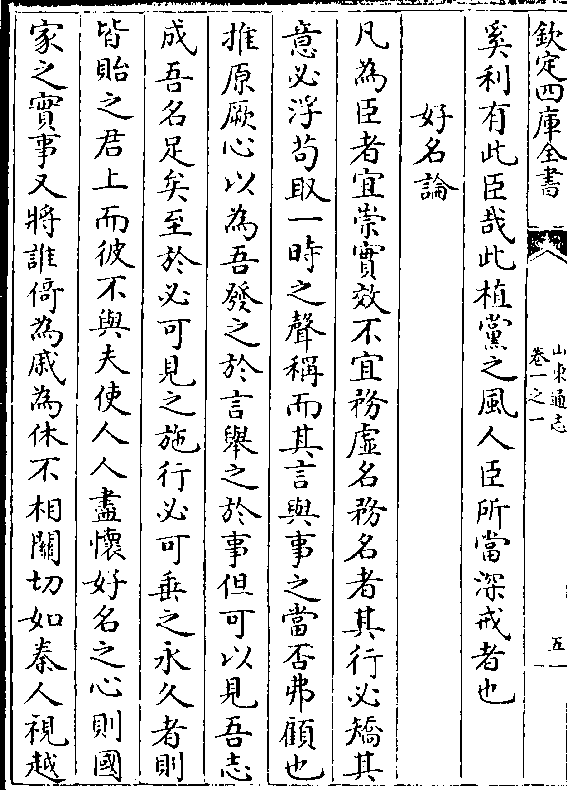 欽定四庫全書
山東通志
卷一之一
五
奚利有此臣哉此植黨之風人臣所當深戒者也
好名論
凡為臣者宜崇實效不宜務虛名務名者其行必矯其
意必浮茍取一時之聲稱而其言與事之當否弗顧也
推原厥心以為吾發之於言舉之於事但可以見吾志
成吾名足矣至於必可見之施行必可垂之永久者則
皆貽之君上而彼不與夫使人人盡懷好名之心則國
家之實事又將誰倚為戚為休不相關切如秦人視越